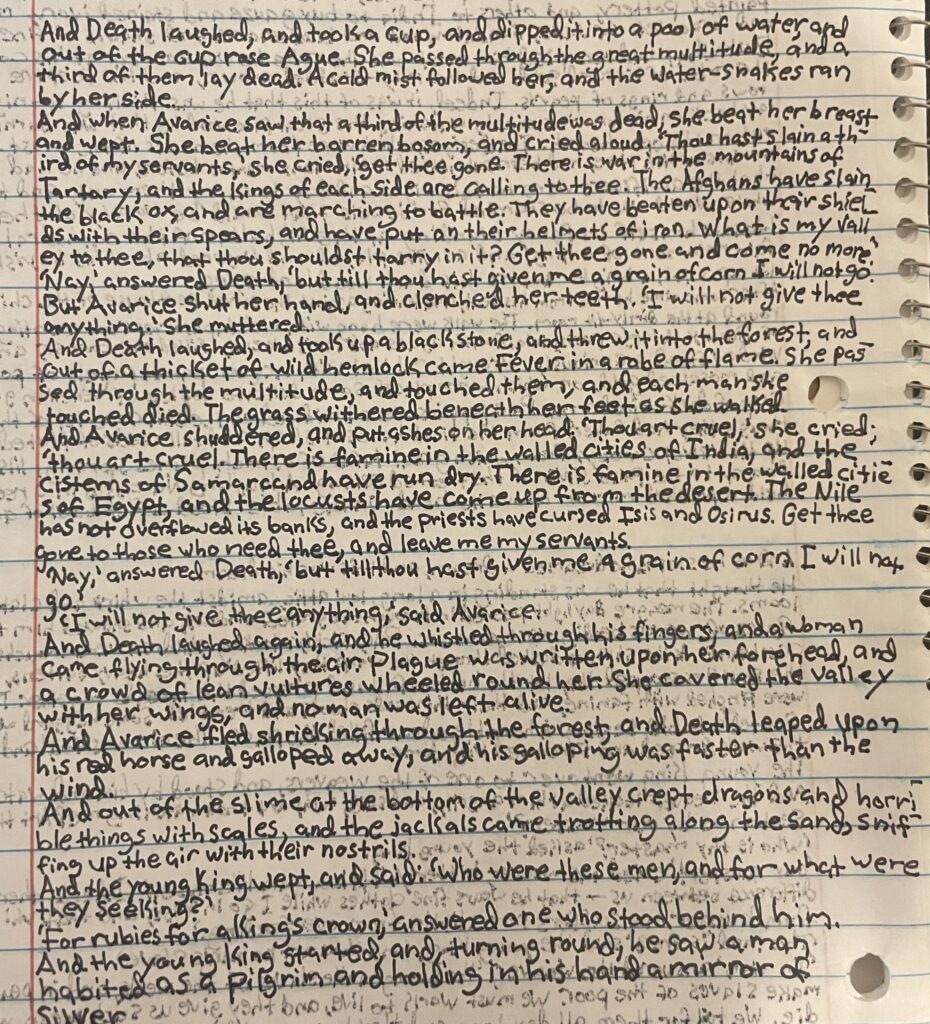 And Death laughed, and took a cup, and dipped it into a pool of water, and
out of the cup rose Ague. She passed through the great multitude, and a
third of them lay dead. A cold mist followed her, and the water-snakes ran
by her side.
And when Avarice saw that a third of the multitude was dead, she beat her breast
and wept. She beat her barren bosom, and cried aloud. 'Thou hast slain a th-
ird of my servants,' she cried, 'get thee gone. There is war in the mountains of
Tartary, and the kings of each side are calling to thee. The Afghans have slain
the black ox, and are marching to battle. They have beaten upon their shiel-
ds with their spears, and have put on their helmets of iron. What is my vall-
ey to thee, that thou shouldst tarry in it? Get thee gone and come no more.'
'Nay,' answered Death, 'but till thou hast given me a grain of corn I will not go.'
But Avarice shut her hand, and clenched her teeth. 'I will not give thee
anything.' She muttered.
And Death laughed, and took up a black stone, and threw it into the forest, and
out of a thicket of wild hemlock came Fever in a robe of flame. She pas-
sed through the multitude, and touched them, and each man she
touched died. The grass withered beneath her feet as she walked.
And Avarice shuddered, and put ashes on her head. 'Thou art cruel,' she cried;
'thou art cruel. There is famine in the walled cities of India, and the
cisterns of Samarcand have run dry. There is famine in the walled citie-
s of Egypt, and the locusts have come up from the desert. The Nile
has not overflowed its banks, and the priests have cursed Isis and Osirus. Get thee
gone to those who need thee, and leave me my servants.
'Nay,' answered Death, 'but till thou hast given me a grain of corn I will not
go.'
'I will not give thee anything,' said Avarice.
And Death laughed again, and he whistled through his fingers, and a woman
came flying through the air. Plague was written upon her forehead, and
a crowd of lean vultures wheeled round her. She covered the valley
with her wings, and no man was left alive.
And Avarice fled shrieking through the forest, and Death leaped upon
his red horse and galloped away, and his galloping was faster than the
wind.
And out of the slime at the bottom of the valley crept dragons and horri-
ble things with scales, and the jackals came trotting along the sand, snif-
fing up the air with their nostrils.
And the young king wept, and said: 'Who were these men, and for what were
they seeking?'
'For rubies for a king's crown,' answered one who stood behind him.
And the young king started, and, turning round, he saw a man
habited as a pilgrim and holding in his hand a mirror of
silver.